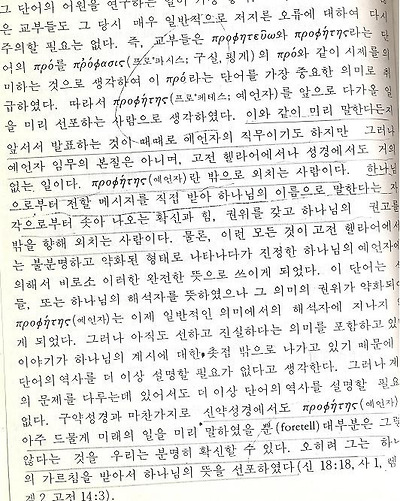 그 단어의 어원을 연구하는 일이 가장
은 교부들도 그 당시 매우 일반적으로 저지른 오류에 대하여 다시
주의할 필요는 없다. 즉, 교부들은 προφητεῦω와 προφήτης라는 단
어의 πρό를 πρόφασις(프로파시스; 구실, 핑계)의 πρό와 같이 시제를 의
미하는 것으로 생각하여 이 πρό라는 단어를 가장 중요한 의미로 취
급하였다. 따라서 προφήτης(프로페테스; 예언자)를 앞으로 다가올 일
을 미리 선포하는 사람으로 생각하였다. 이와 같이 미리 말한다든지
앞서서 발표하는 것이 때때로 예언자의 직무이기도 하지만 그러나
예언자 임무의 본질은 아니며, 고전 헬라어에서나 성경에서도 거의
없는 일이다. προφήτης(예언자)란 밖으로 외치는 사람이다. 하나님
으로부터 전할 메시지를 직접 받아 하나님의 이름으로 말한다는 자
각으로부터 솟아 나오는 확신과 힘, 권위를 갖고 하나님의 권고를
밖을 향해 외치는 사람이다. 물론, 이런 모든 것이 고전 헬라어에서
는 불분명하고 약화된 형태로 나타나다가 진정한 하나님의 예언자에
의해서 비로소 이러한 완전한 뜻으로 쓰이게 되었다. 이 단어는
들, 또는 하나님의 해석자를 뜻하였으나 그 의미의 권위가 약화되어
προφήτης(예언자)는 이제 일반적인 의미에서의 해석자에 지나지
게 되었다. 그러나 아직도 선하고 진실하다는 의미를 포함하고 있
이야기가 하나님의 계시에 대한 촛점 밖으로 나가고 있기 때문에
단어의역사를 더 이상 설명할 필요가 없다고 생각한다. 그러나
의 문제를 다루는데 있어서도 더 이상 단어의역사를 설명할 필요
없다. 구약성경과 마찬가지로 신약성경에서도 προφήτης(예언자)
아주 드물게 미래의 일을 미리 말하였을 뿐(foretell) 대부분은
않다는 것을 우리는 분명히 확신할 수 있다. 오히려 그는
의 가르침을 받아서 하나님의 뜻을 선포하였다(신 18:18, 사 1, 렘
겔 2, 고전 14:3).